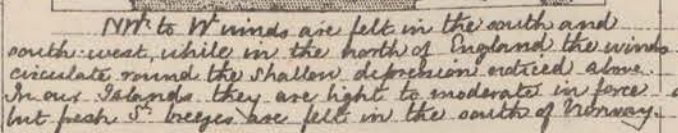 NWʳ to Wʳ winds are felt in the south and
south-west, while in the north of England the winds
circulate round the shallow depression noticed above.
In our Islands they are light to moderate in force
but fresh Sʸ breezes are felt in the south of Norway.